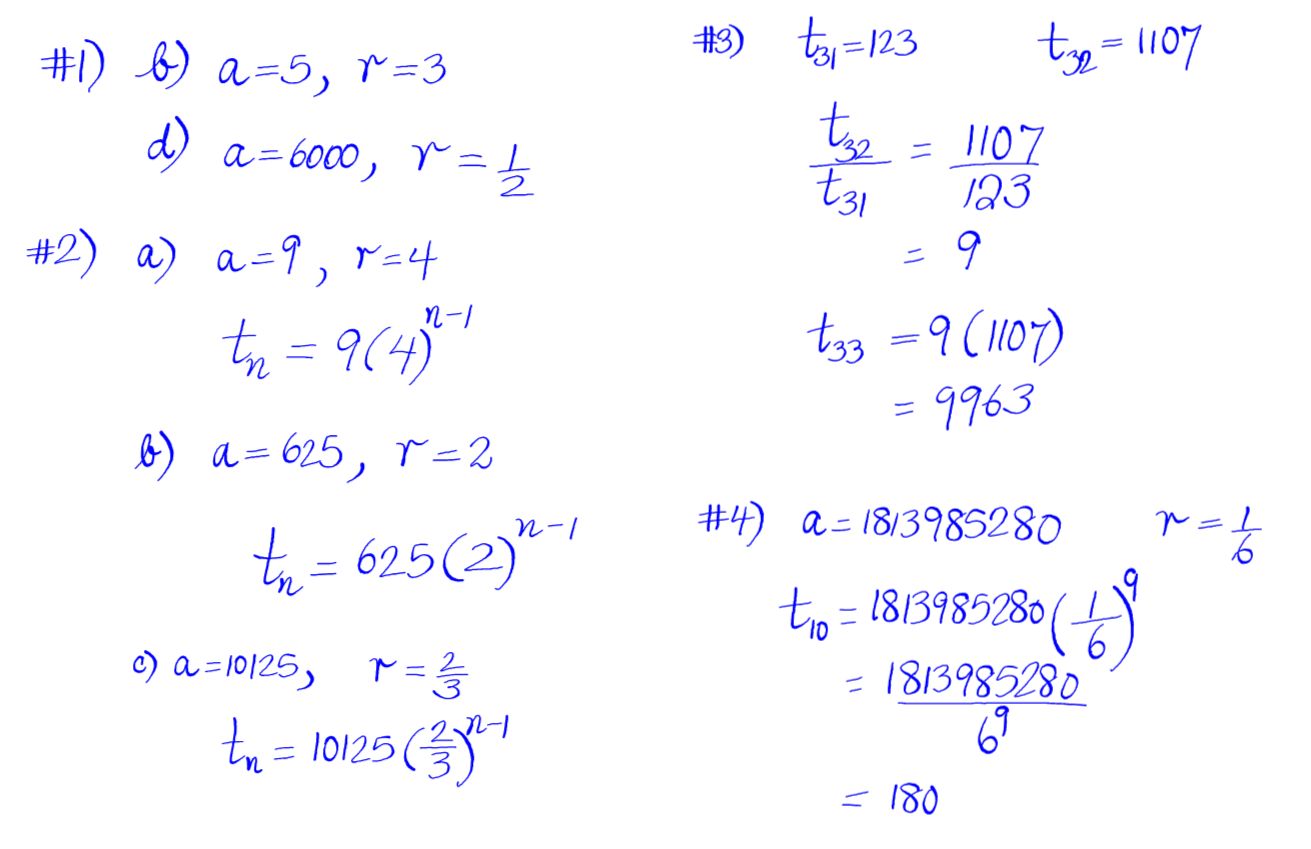 #1) b) a=5, r=3
d) a=6000, r=1/2
#2) a) a=9, r=4
tₙ = 9(4)ⁿ⁻¹
b) a=625, r=2
tₙ = 625(2)ⁿ⁻¹
c) a=10125, r=2/3
tₙ = 10125(2/3)ⁿ⁻¹
#3) t₃₁=123 t₃₂=1107
t₃₂/t₃₁ = 1107/123
= 9
t₃₃ = 9(1107)
= 9963
#4) a=1813985280 r=1/6
t₁₀ = 1813985280(1/6)⁹
= 1813985280/6⁹
= 180